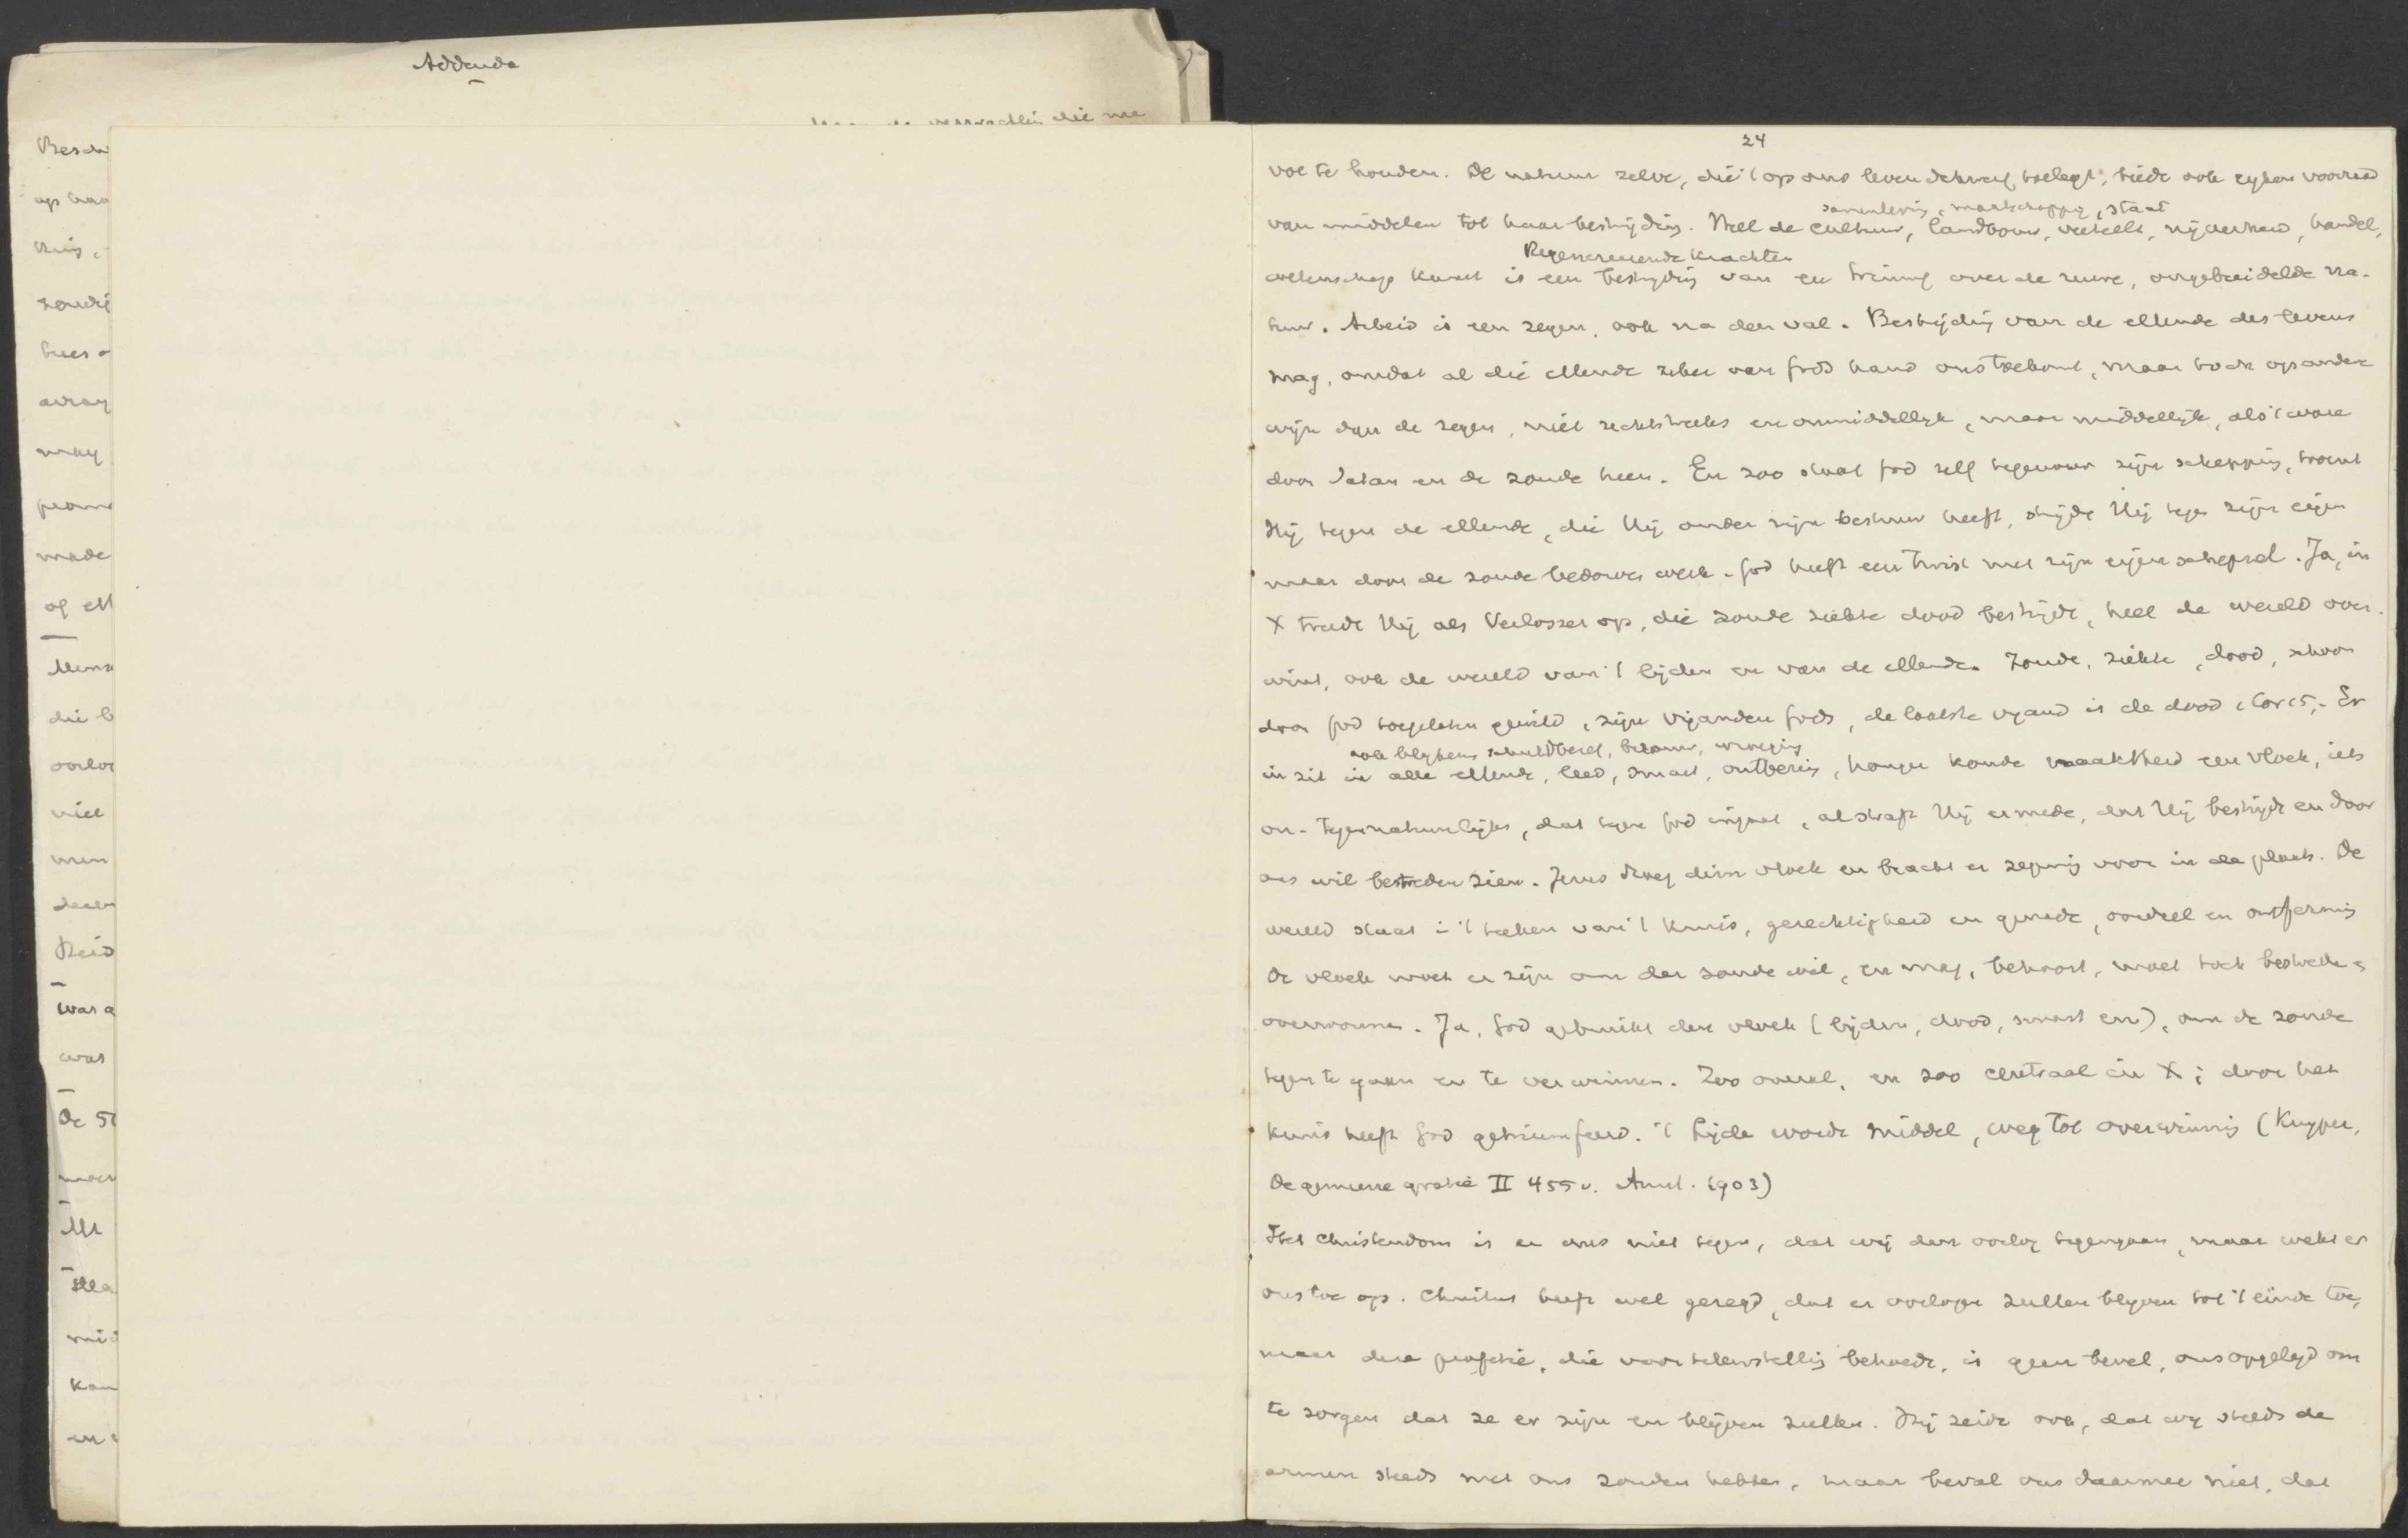 Addenda
24
voe te houden. De natuur zelve, die 't op ons leven dikwerf toelegt, biedt ook rijken voorraad
samenleving, maatschappij, staat
van middelen tot haar bestrijding. Heel de cultuur, landbouw, veeteelt, nijverheid, handel,
Regenereerende krachten
wetenschap kunst is een bestrijding van en triumf over de ruwe, ongebreidelde na-
tuur. Arbeid is een zegen, ook na den val. Bestrijding van de ellende des levens
mag, omdat al die ellende zeker van Gods hand ons toekomt, maar toch op andere
wijze dan de zegen, niet rechtstreeks en onmiddellijk, maar middellijk, als 't ware
door Satan en de zonde heen. En zoo staat God zelf tegenover zijn schepping, toornt
Hij tegen de ellende, die Hij onder zijn bestuur heeft, strijdt Hij tegen zijn eigen
maar door de zonde bedorven werk. God heeft een twist met zijn eigen schepsel. Ja, in
X treedt Hij als Verlosser op, die zonde ziekte dood bestrijdt, heel de wereld over-
wint, ook de wereld van 't lijden en van de ellende. Zonde, ziekte, dood, schoon
door God toegelaten gewild, zijn vijanden Gods, de laatste vijand is de dood 1 Cor 15. Er
ook blijkens schuldbesef, berouw, wroeging
in zit in alle ellende, leed, smart, ontbering, honger koude naaktheid een vloek, iets
on- tegennatuurlijks, dat tegen God ingaat, al straft Hij ermede, dat Hij bestrijdt en door
ons wil bestreden zien. Jezus droeg dien vloek en bracht er zegening voor in de plaats. De
wereld staat in 't teeken van 't kruis, gerechtigheid en genade, oordeel en ontferming
De vloek moet er zijn om der zonde wil, en mag, behoort, moet toch bestreden
overwonnen. Ja, God gebruikt den vloek (lijden, dood, smart enz), om de zonde
tegen te gaan en te verwinnen. Zoo overal, en zoo centraal in X; door het
kruis heeft God getriumfeerd. 't Lijden wordt middel, weg tot overwinning (Kuyper,
De gemeene gratie II 455v. Amst. 1903)
Het Christendom is er dus niet tegen, dat wij den oorlog tegengaan, maar wekt er
ons toe op. Christus heeft wel gezegd, dat er oorlogen zullen blijven tot 't einde toe,
maar deze profetie, die voor teleurstelling behoedt, is geen bevel, ons opgelegd om
te zorgen dat ze er zijn en blijven zullen. Hij zeide ook, dat wij steeds de
armen steeds met ons zouden hebben, maar beval ons daarmee niet, dat